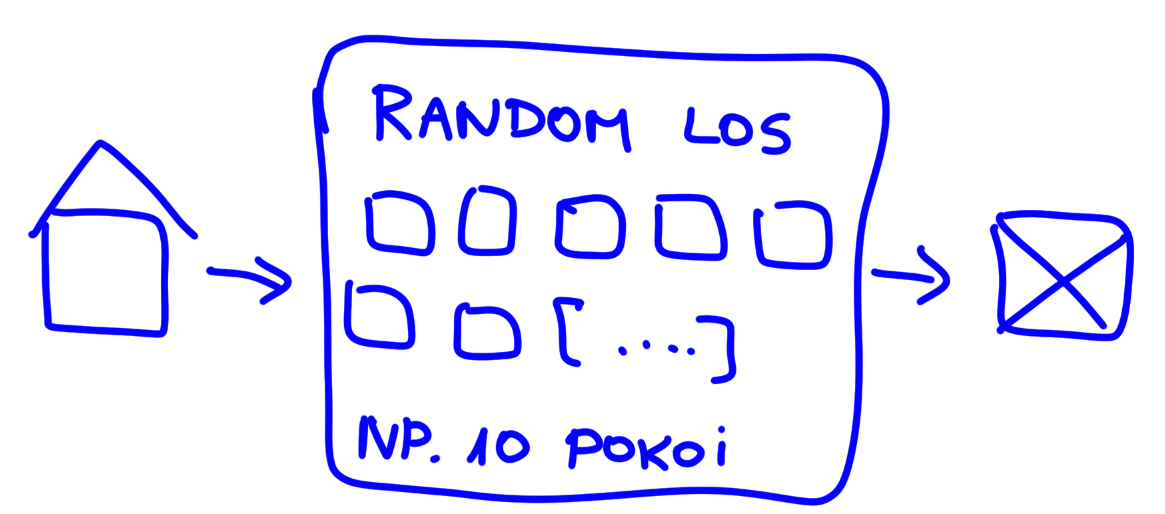 RANDOM LOS
[....]
NP. 10 POKOi